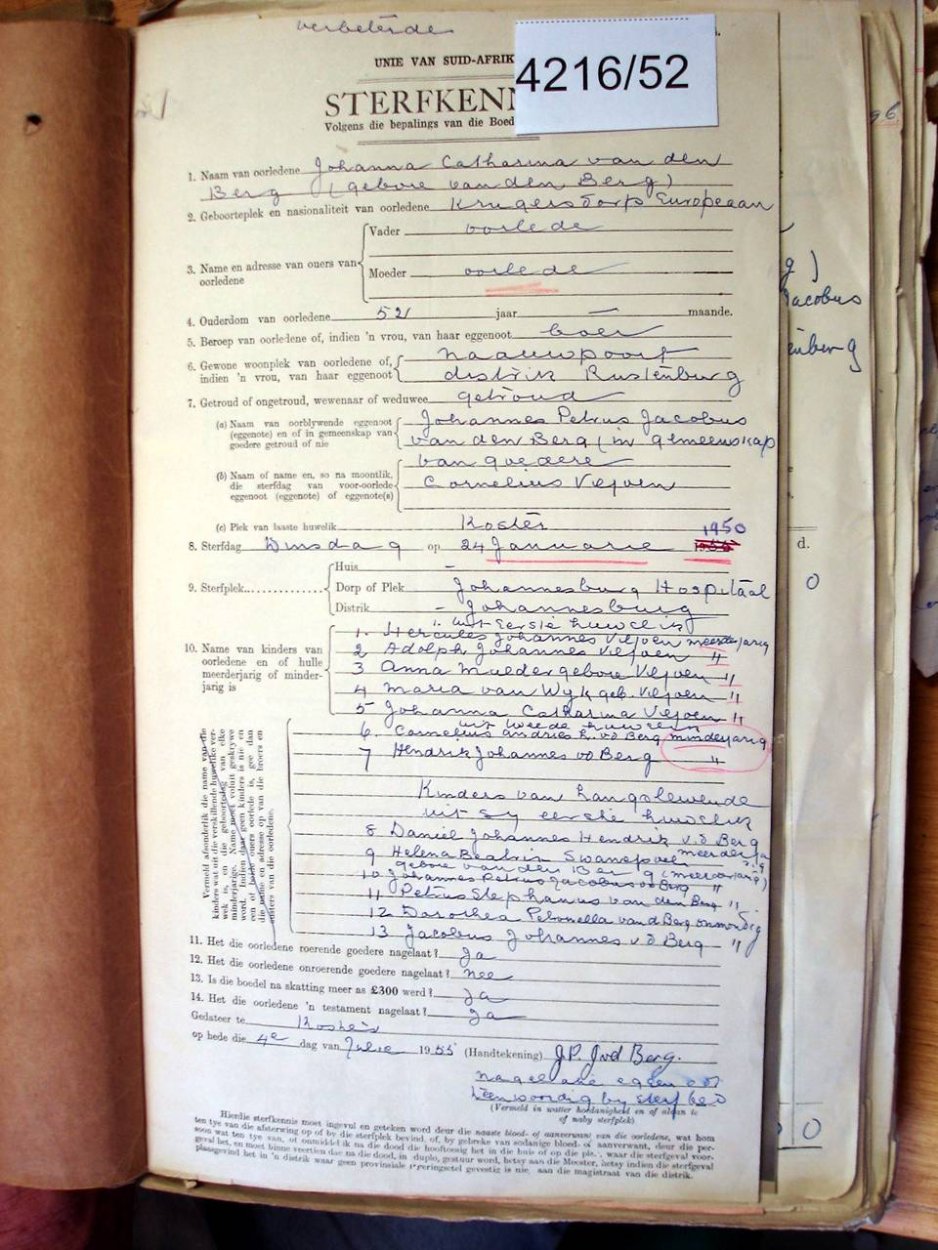 verbeterde
UNIE VAN SUID-AFRIK
4216/52
STERFKENN
Volgens die bepalings van die Boed
1. Naam van oorledene Johanna Catharina van den
Berg (gebore van den Berg)
2. Geboorteplek en nasionaliteit van oorledene Krugersdorp Europeaan
3. Name en adresse van ouers van oorledene
Vader oorlede
Moeder oorlede
4. Ouderdom van oorledene 52 jaar — maande.
5. Beroep van oorledene of, indien 'n vrou, van haar eggenoot boer
6. Gewone woonplek van oorledene of, Naauwpoort
indien 'n vrou, van haar eggenoot distrik Rustenburg
7. Getroud of ongetroud, wewenaar of weduwee getroud
(a) Naam van oorblywende eggenoot Johannes Petrus Jacobus
(eggenote) en of in gemeenskap van van den Berg (in gemeenskap
goedere getroud of nie van goedere
(b) Naam of name en, so na moontlik, Cornelius Viljoen
die sterfdag van voor-oorlede
eggenoot (eggenote) of eggenote(s)
(c) Plek van laaste huwelik Koster
8. Sterfdag Dinsdag op 24 Januarie 1950
9. Sterfplek
Huis –
Dorp of Plek Johannesburg Hospitaal
Distrik – Johannesburg
10. Name van kinders van
oorledene en of hulle
meerderjarig of minder-
jarig is
uit Eerste huwelik
1. Hercules Johannes Viljoen meerderjarig
2 Adolph Johannes Viljoen "
3 Anna Mulder gebore Viljoen "
4 Maria van Wyk geb. Viljoen "
5 Johanna Catharina Viljoen "
uit tweede huwelik
6. Cornelius Andries H. vd Berg minderjarig
7 Hendrik Johannes vd Berg "
Kinders van Langslewende
uit sy eerste huwelik
8 Daniel Johannes Hendrik v.d. Berg
9 Helena Beatrix Swanepoel
gebore van den Berg (meerderjarig)
10 Johannes Petrus Jacobus vd Berg "
11 Petrus Stephanus van den Berg "
12 Dorothea Petronella van d Berg onmondig
13 Jacobus Johannes v.d Berg "
Vermeld afsonderlik die name van die
kinders wat uit die verskillende huwelike ver-
wek is, en die geboortedag van elke
minderjarige. Name moet voluit geskrywe
word. Indien daar geen kinders is nie en
een of beide ouers oorlede is, gee dan
die name en adresse op van die broers en
susters van die oorledene.
11. Het die oorledene roerende goedere nagelaat? Ja
12. Het die oorledene onroerende goedere nagelaat? Nee
13. Is die boedel na skatting meer as £300 werd? Ja
14. Het die oorledene 'n testament nagelaat? Ja
Gedateer te Koster
op hede die 4e dag van Julie 1955 (Handtekening) J.P. J vd Berg.
Nagelate eggenoot
teenwoordig by sterfbed
(Vermeld in watter hoedanigheid en of al dan te
of naby sterfplek)
Hierdie sterfkennis moet ingevul en geteken word deur die naaste bloed- of aanverwant van die oorledene, wat hom
ten tye van die afsterwing op of by die sterfplek bevind of, by gebreke van sodanige bloed- of aanverwant, deur die per-
soon wat ten tye van, of onmiddellik na die dood die hooftoesig het in die huis of op die plek, waar die sterfgeval voor-
geval het, en moet binne veertien dae na die dood, in duplo, gestuur word, hetsy aan die Meester, hetsy indien die sterfgeval
plaasgevind het in 'n distrik waar geen provinsiale registrasiekantoor gevestig is nie, aan die magistraat van die distrik.
g)
Jacobus
enberg
d.
0
0